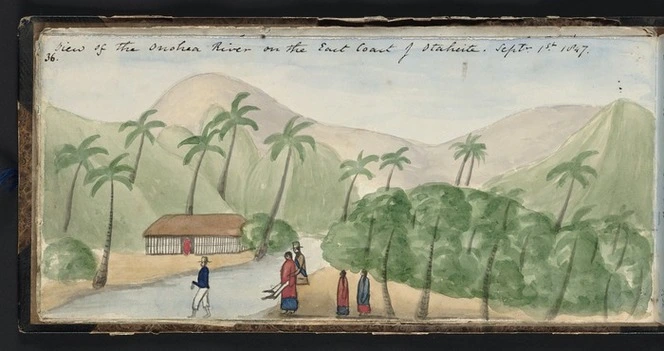 View of the Onohea River on the East Coast of Otaheite. Septr 1st 1847.
36.